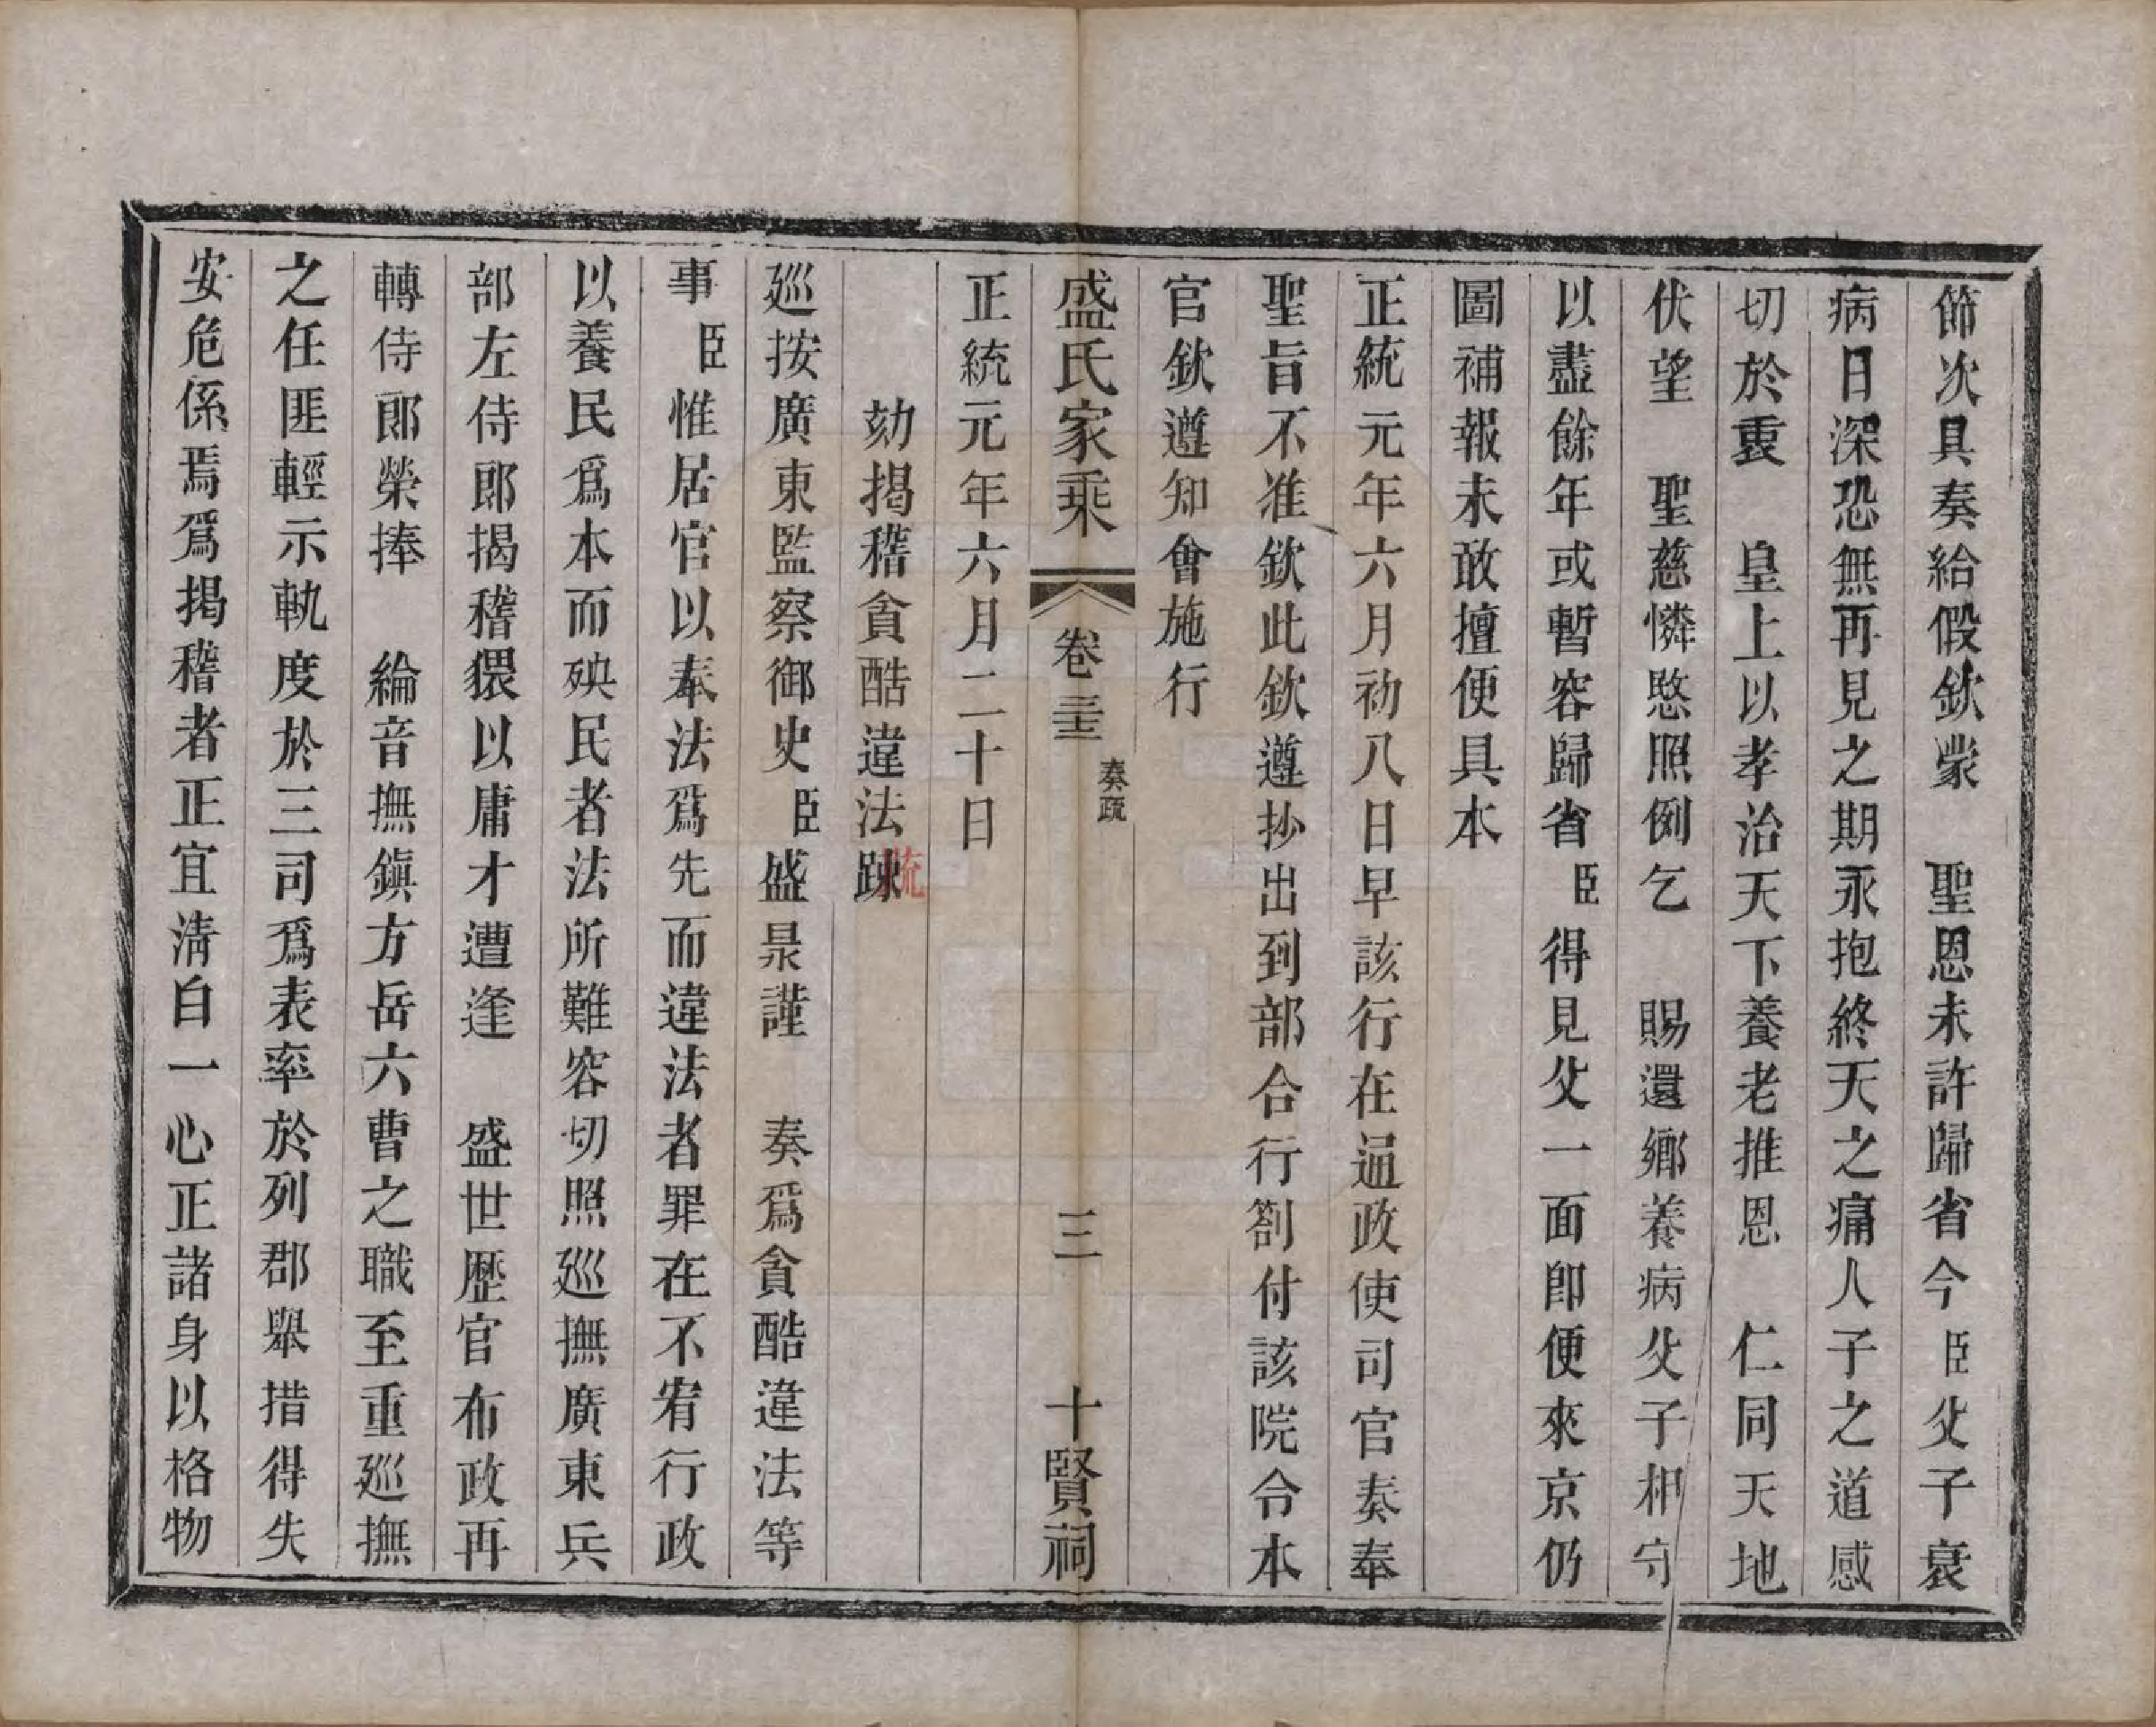 節次具奏給假欽蒙　聖恩未許歸省今臣父子衰
病日深恐無再見之期永抱終天之痛人子之道感
切於衷　皇上以孝治天下養老推恩　仁同天地
伏望　聖慈憐愍照例乞　賜還鄉養病父子相守
以盡餘年或暫容歸省臣得見父一面卽便來京仍
圖補報未敢擅便具本
正統元年六月初八日早該行在通政使司官奏奉
聖旨不准欽此欽遵抄出到部合行劄付該院令本
官欽遵知會施行
盛氏家乘　卷三　奏疏　三　十賢祠
正統元年六月二十日
劾揭稽貪酷違法踈
疏
巡按廣東監察御史臣盛㫤謹　奏爲貪酷違法等
事臣惟居官以奉法爲先而違法者罪在不宥行政
以養民爲本而殃民者法所難容切照巡撫廣東兵
部左侍郎揭稽猥以庸才遭逢　盛世歷官布政再
轉侍郎榮捧　綸音撫鎭方岳六曹之職至重巡撫
之任匪輕示軌度於三司爲表率於列郡舉措得失
安危係焉爲揭稽者正宜淸白一心正諸身以格物